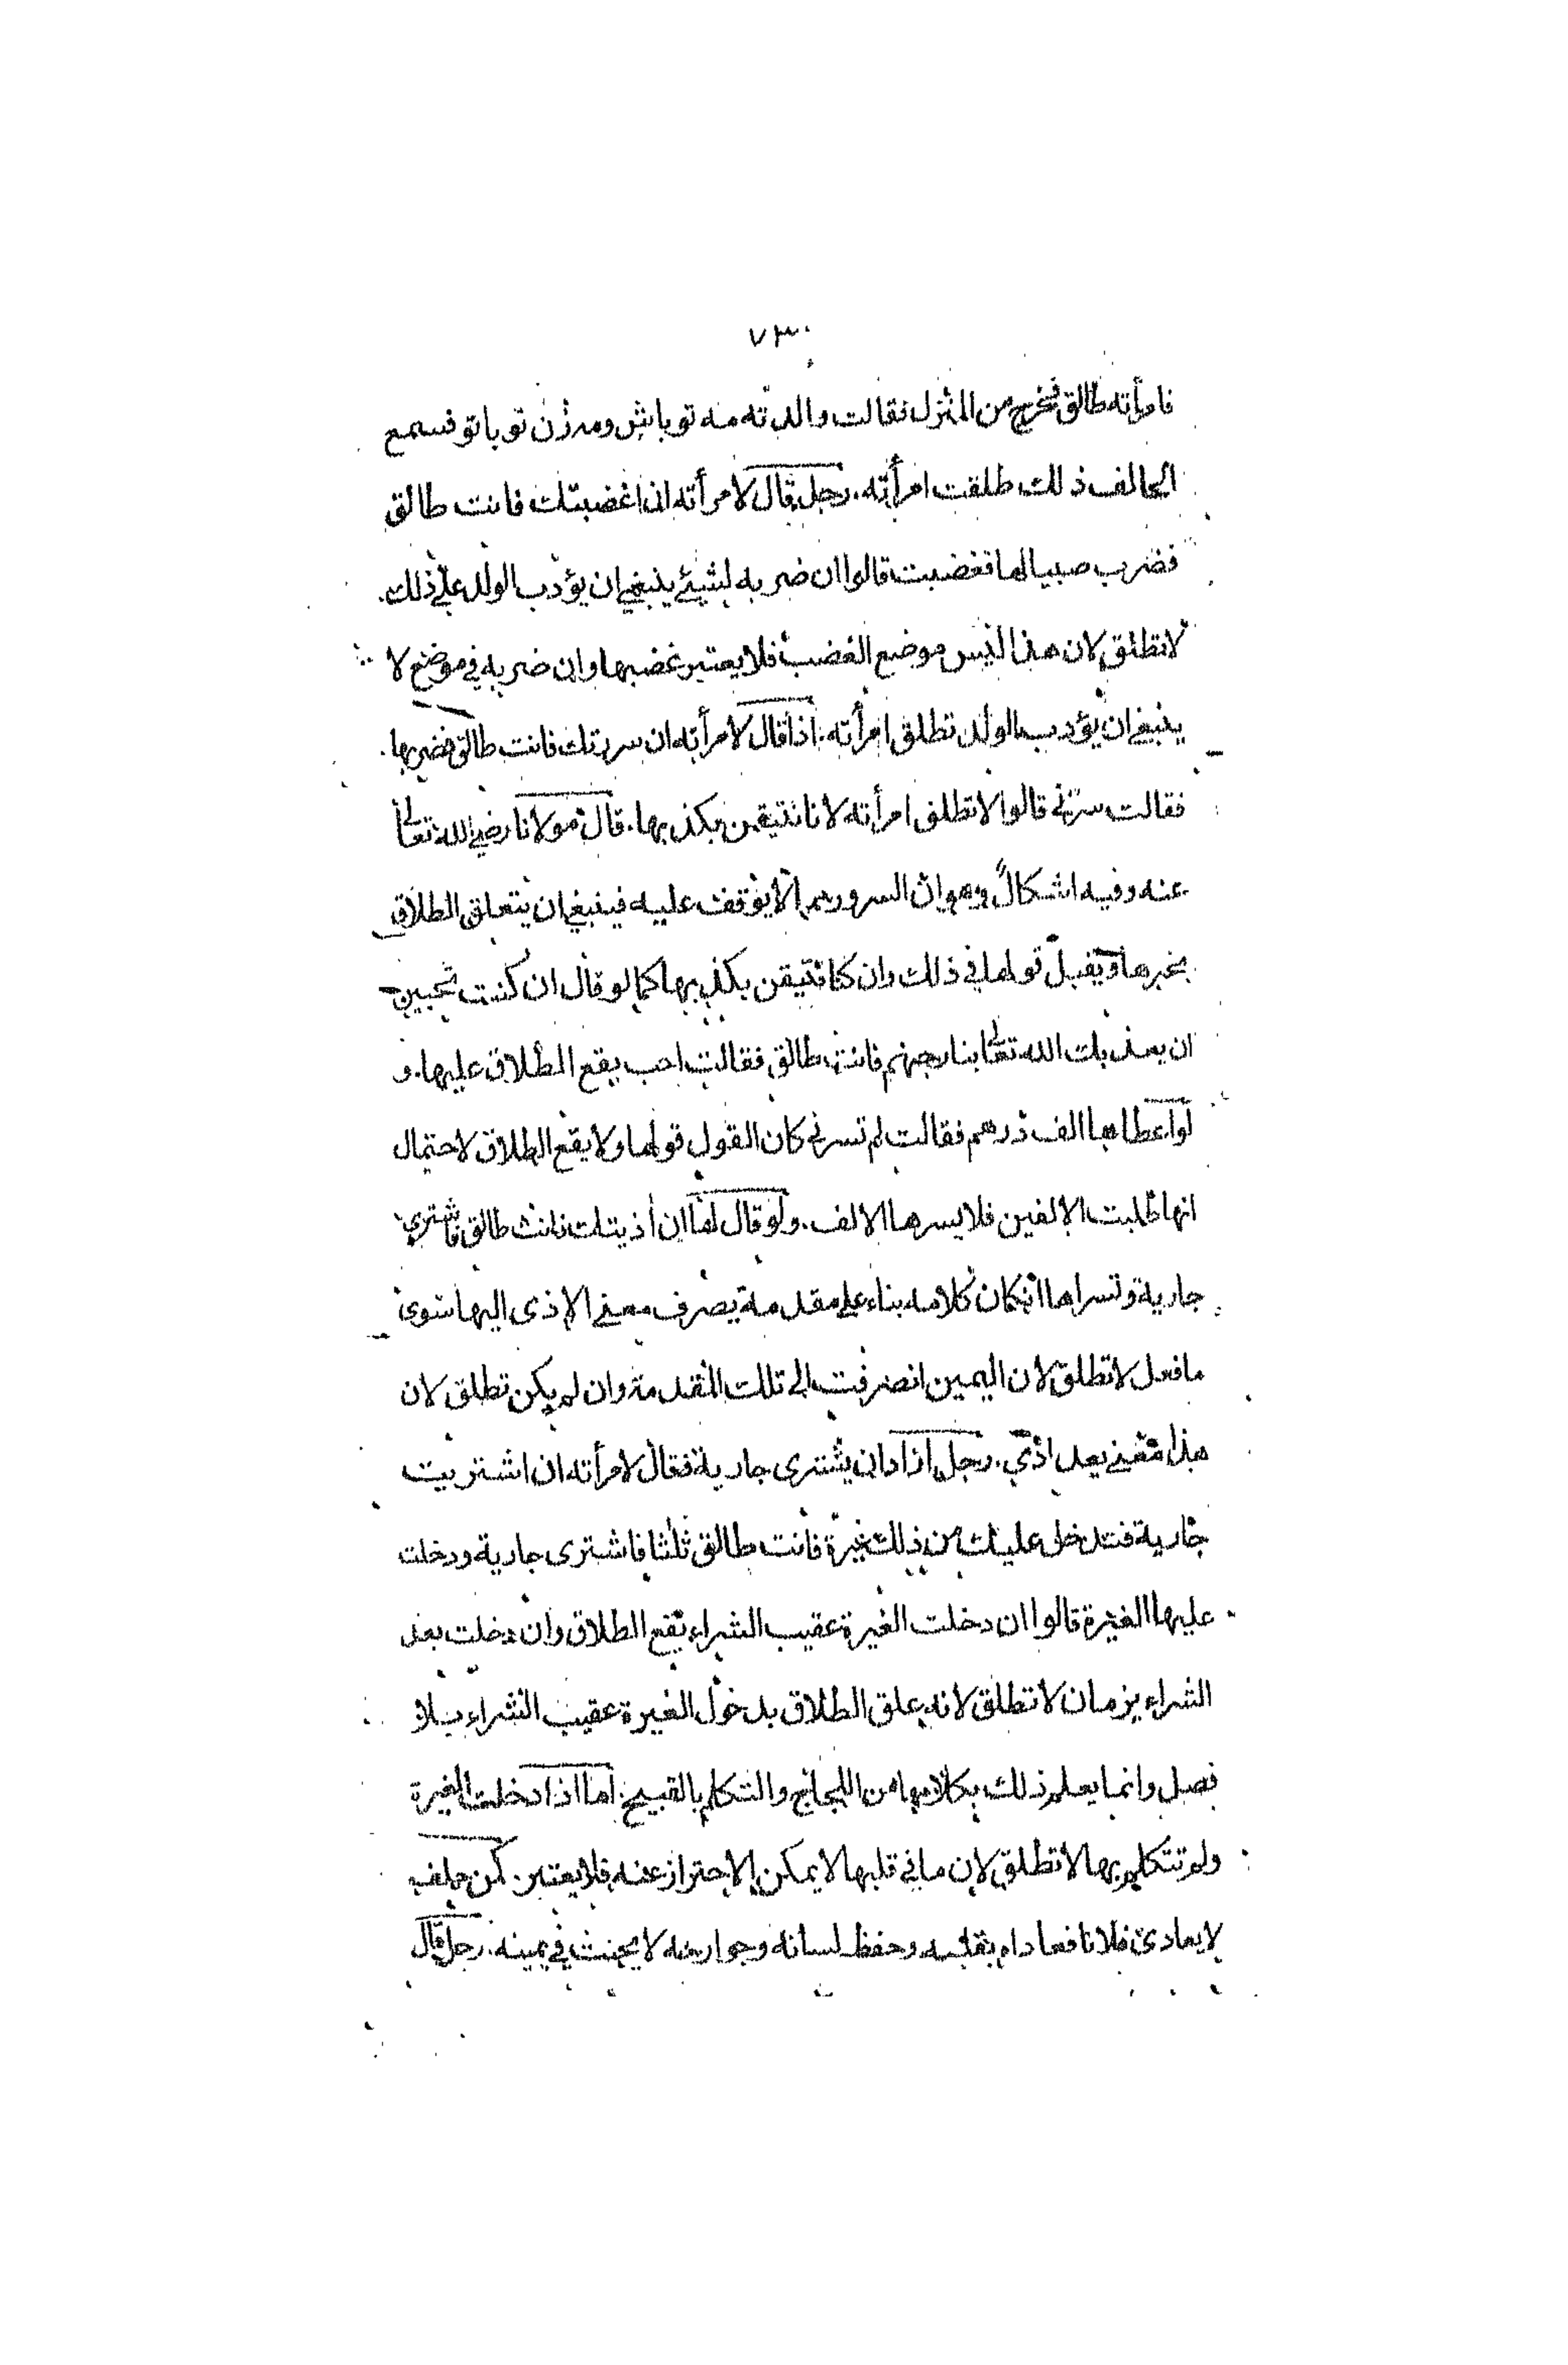 ٧٣٠
فامرأته طالق فخرج من المنزل فقالت والدته مه تو باش ومه زن تو باتو فسمع
الحالف ذلك طلقت امرأته. رجل قال لامرأته ان اغضبتك فانت طالق
فضرب صبيا لها فغضبت قالوا ان ضربه لشيئ ينبغي ان يؤدب الولد على ذلك.
لا تطلق لان هذا ليس موضع الغضب فلا يعتبر غضبها وان ضربه في موضع لا
ينبغي ان يؤدب الولد تطلق امرأته. اذا قال لامرأته ان سررتك فانت طالق فضربها.
فقالت سرّني قالوا لا تطلق امرأته لانا نتيقن بكذبها. قال مولانا رضي الله تعالى
عنه وفيه اشكالٌ وهو ان السرور مما لا يوقف عليه فينبغي ان يتعلق الطلاق
بخبرها ويقبل قولها في ذلك وان كنا نتيقن بكذبها كما لو قال ان كنت تحبين
ان يعذبك الله تعالى بنار جهنم فانت طالق فقالت احب يقع الطلاق عليها. و
لو اعطاها الف درهم فقالت لم تسرني كان القول قولها ولا يقع الطلاق لاحتمال
انها طلبت الالفين فلا يسرها الالف. ولو قال لها ان أذيتك فانت طالق فاشترى
جارية وتسراها انكان كلامه بناء على مقدمة يصرف معنى الاذى اليها سوى
ما فعل لا تطلق لان اليمين انصرفت الى تلك المقدمة وان لم يكن تطلق لان
هذا معنى يعد اذى. رجل اراد ان يشترى جارية فقال لامرأته ان اشتريت
جارية فتدخل عليك من ذلك غيرة فانت طالق ثلثا فاشترى جارية ودخلت
عليها الغيرة قالوا ان دخلت الغيرة عقيب الشراء يقع الطلاق وان دخلت بعد
الشراء بزمان لا تطلق لانه علق الطلاق بدخول الغيرة عقيب الشراء بلا
فصل وانما يعلم ذلك بكلامها من اللجاج والتكلم بالقبيح. اما اذا دخلت الغيرة
ولم تتكلم بها لا تطلق لان ما في قلبها لا يمكن الاحتراز عنه فلا يعتبر. كمن حلف
لا يعادى فلانا فعاداه بقلبه وحفظ لسانه وجوارحه لا يحنث في يمينه. رجل قال